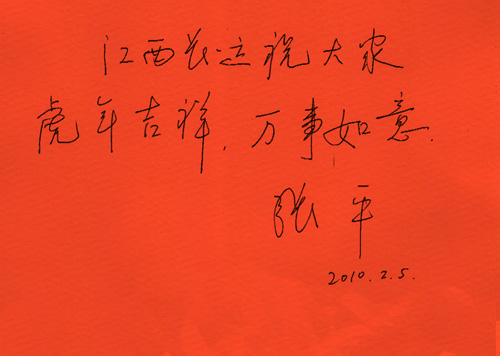 江西长运祝大家
虎年吉祥，万事如意
张平
2010.2.5.